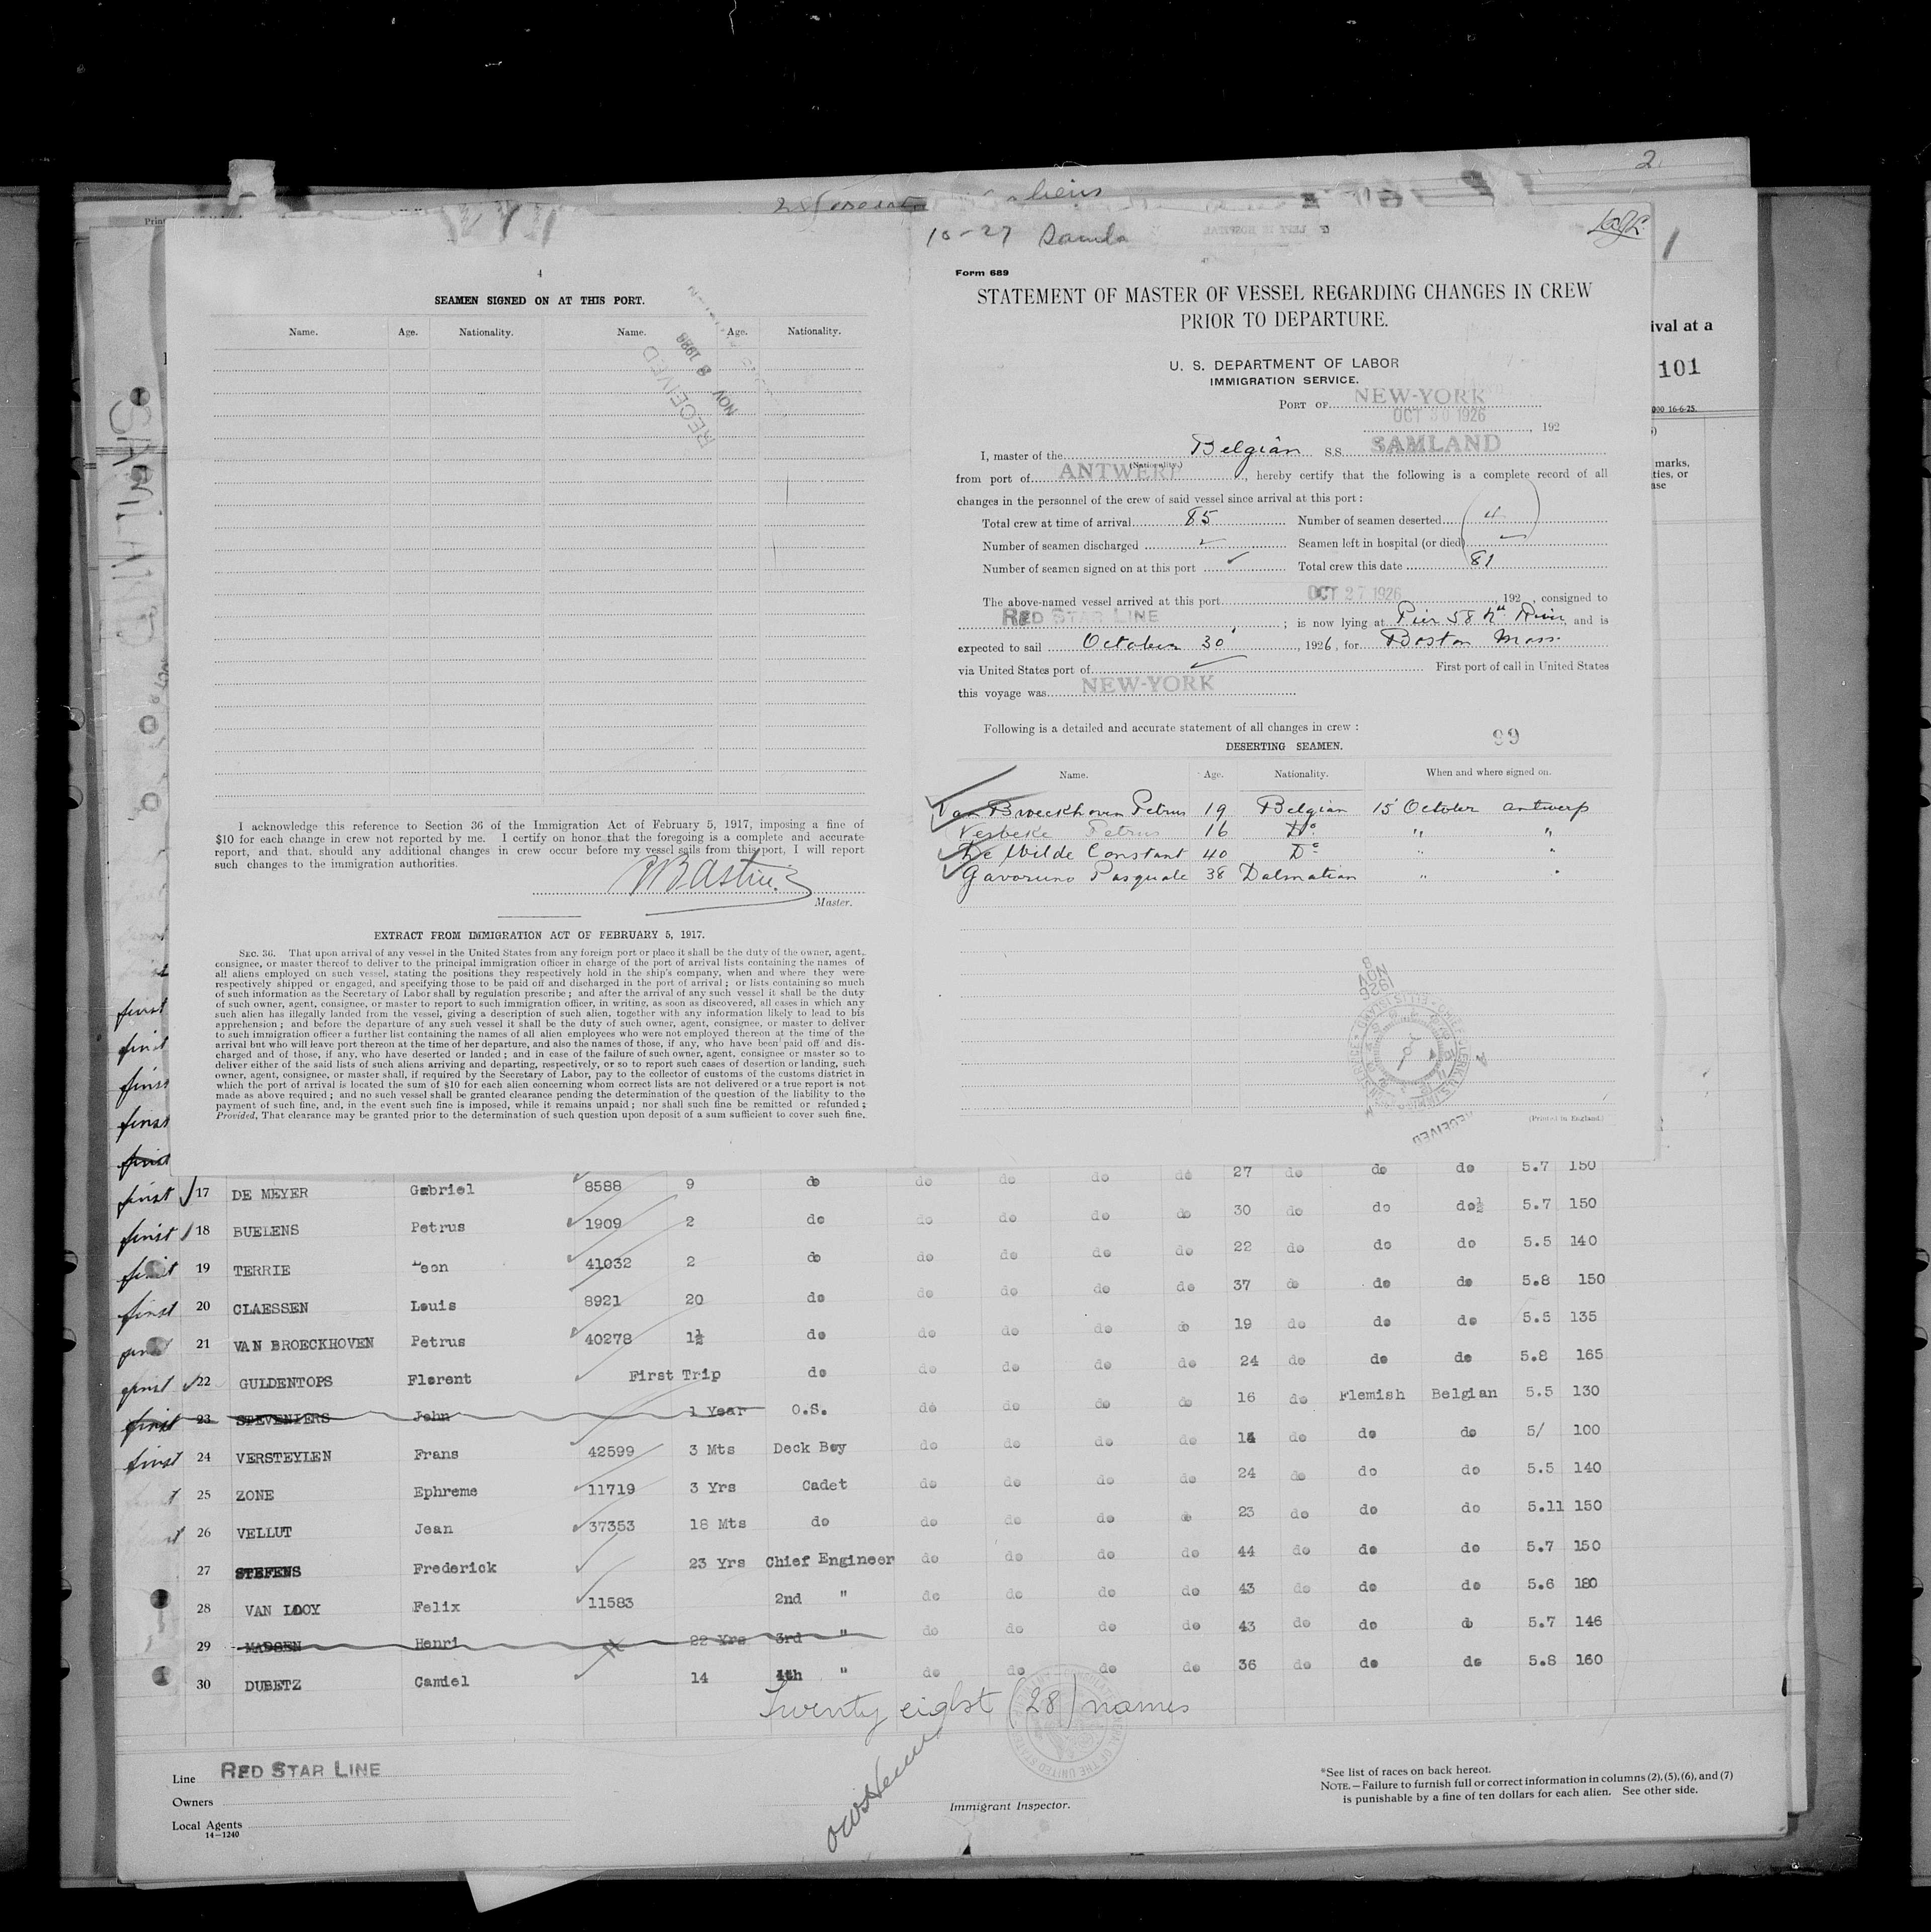 2
10-27
4
SEAMEN SIGNED ON AT THIS PORT.
Name. Age. Nationality. Name. Age. Nationality.
RECEIVED
NOV 8 1926
I acknowledge this reference to Section 36 of the Immigration Act of February 5, 1917, imposing a fine of
$10 for each change in crew not reported by me. I certify on honor that the foregoing is a complete and accurate
report, and that should any additional changes in crew occur before my vessel sails from this port, I will report
such changes to the immigration authorities.
Master.
EXTRACT FROM IMMIGRATION ACT OF FEBRUARY 5, 1917.
SEC. 36. That upon arrival of any vessel in the United States from any foreign port or place it shall be the duty of the owner, agent,
consignee, or master thereof to deliver to the principal immigration officer in charge of the port of arrival lists containing the names of
all aliens employed on such vessel, stating the positions they respectively hold in the ship's company, when and where they were
respectively shipped or engaged, and specifying those to be paid off and discharged in the port of arrival; or lists containing so much
of such information as the Secretary of Labor shall by regulation prescribe; and after the arrival of any such vessel it shall be the duty
of such owner, agent, consignee, or master to report to such immigration officer, in writing, as soon as discovered, all cases in which any
such alien has illegally landed from the vessel, giving a description of such alien, together with any information likely to lead to his
apprehension; and before the departure of any such vessel it shall be the duty of such owner, agent, consignee, or master to deliver
to such immigration officer a further list containing the names of all alien employees who were not employed thereon at the time of the
arrival but who will leave port thereon at the time of her departure, and also the names of those, if any, who have been paid off and dis-
charged and of those, if any, who have deserted or landed; and in case of the failure of such owner, agent, consignee or master so to
deliver either of the said lists of such aliens arriving and departing, respectively, or so to report such cases of desertion or landing, such
owner, agent, consignee, or master shall, if required by the Secretary of Labor, pay to the collector of customs of the customs district in
which the port of arrival is located the sum of $10 for each alien concerning whom correct lists are not delivered or a true report is not
made as above required; and no such vessel shall be granted clearance pending the determination of the question of the liability to the
payment of such fine, and, in the event such fine is imposed, while it remains unpaid; nor shall such fine be remitted or refunded;
Provided, That clearance may be granted prior to the determination of such question upon deposit of a sum sufficient to cover such fine.
Form 689
STATEMENT OF MASTER OF VESSEL REGARDING CHANGES IN CREW
PRIOR TO DEPARTURE.
U. S. DEPARTMENT OF LABOR
IMMIGRATION SERVICE.
PORT OF NEW-YORK
OCT 30 1926, 192
I, master of the Belgian S.S. SAMLAND
(Nationality.)
from port of ANTWERP, hereby certify that the following is a complete record of all
changes in the personnel of the crew of said vessel since arrival at this port:
Total crew at time of arrival 85 Number of seamen deserted 4
Number of seamen discharged ✓ Seamen left in hospital (or died) ✓
Number of seamen signed on at this port ✓ Total crew this date 81
The above-named vessel arrived at this port OCT 27 1926, 192 , consigned to
RED STAR LINE ; is now lying at Pier 58 and is
expected to sail October 30, 1926, for Boston Mass.
via United States port of ✓ First port of call in United States
this voyage was NEW-YORK
Following is a detailed and accurate statement of all changes in crew:
99
DESERTING SEAMEN.
Name. Age. Nationality. When and where signed on.
Van Broeckhoven Petrus 19 Belgian 15 October antwerp
Verbeke Petrus 16 Do " "
De Wilde Constant 40 Do " "
Gavoruno Pasquale 38 Dalmatian " "
NOV 8 1926
RECEIVED
(Printed in England)
1
ival at a
101
000 16-6-25.
marks,
ties, or
ase
SAMLAND
27 do do do 5.7 150
first 17 DE MEYER Gabriel 8588 9 do do do do do 30 do do do½ 5.7 150
first 18 BUELENS Petrus 1909 2 do do do do do 22 do do do 5.5 140
first 19 TERRIE Leon 41032 2 do do do do do 37 do do do 5.8 150
first 20 CLAESSEN Louis 8921 20 do do do do do 19 do do do 5.5 135
21 VAN BROECKHOVEN Petrus 40278 1½ do do do do do 24 do do do 5.8 165
first 22 GULDENTOPS Florent First Trip do do do do do 16 do Flemish Belgian 5.5 130
first 23 STEVENIERS John 1 Year O.S. do do do do 14 do do do 5/ 100
first 24 VERSTEYLEN Frans 42599 3 Mts Deck Boy do do do do 24 do do do 5.5 140
25 ZONE Ephreme 11719 3 Yrs Cadet do do do do 23 do do do 5.11 150
26 VELLUT Jean 37353 18 Mts do do do do do 44 do do do 5.7 150
27 STEFENS Frederick 23 Yrs Chief Engineer do do do do 43 do do do 5.6 180
28 VAN LOOY Felix 11583 2nd " do do do do 43 do do do 5.7 146
29 MADSEN Henri 22 Yrs 3rd " do do do do 36 do do do 5.8 160
30 DUBETZ Camiel 14 4th " do do do do
Twenty eight (28) names
Line RED STAR LINE
Owners
Local Agents
14-1240
Immigrant Inspector.
*See list of races on back hereof.
NOTE.—Failure to furnish full or correct information in columns (2), (5), (6), and (7)
is punishable by a fine of ten dollars for each alien. See other side.